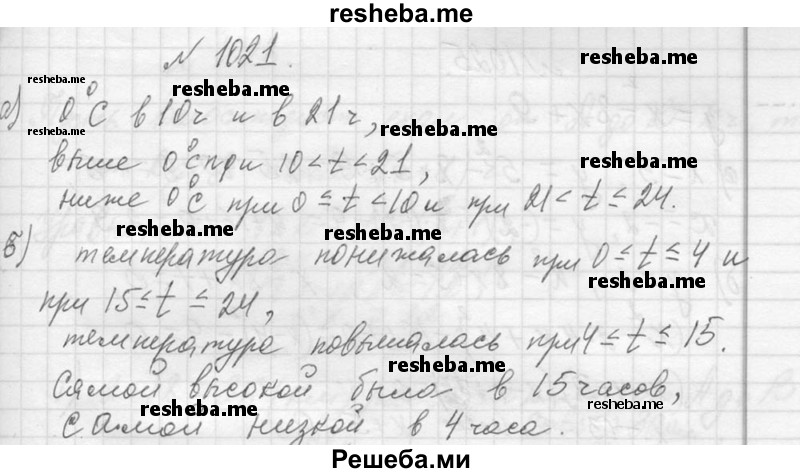 resheba.me
№ 1021.
resheba.me resheba.me
resheba.me
а) 0°С в 10ч и в 21ч,
resheba.me
выше 0°С при 10 < t < 21,
resheba.me resheba.me
ниже 0°С при 0 ≤ t < 10 и при 21 < t ≤ 24.
resheba.me resheba.me
б) температура понижалась при 0 ≤ t ≤ 4 и
resheba.me
при 15 ≤ t ≤ 24,
resheba.me
температура повышалась при 4 ≤ t ≤ 15.
resheba.me
Самой высокой была в 15 часов,
resheba.me resheba.me
самой низкой в 4 часа.
Решеба.ми